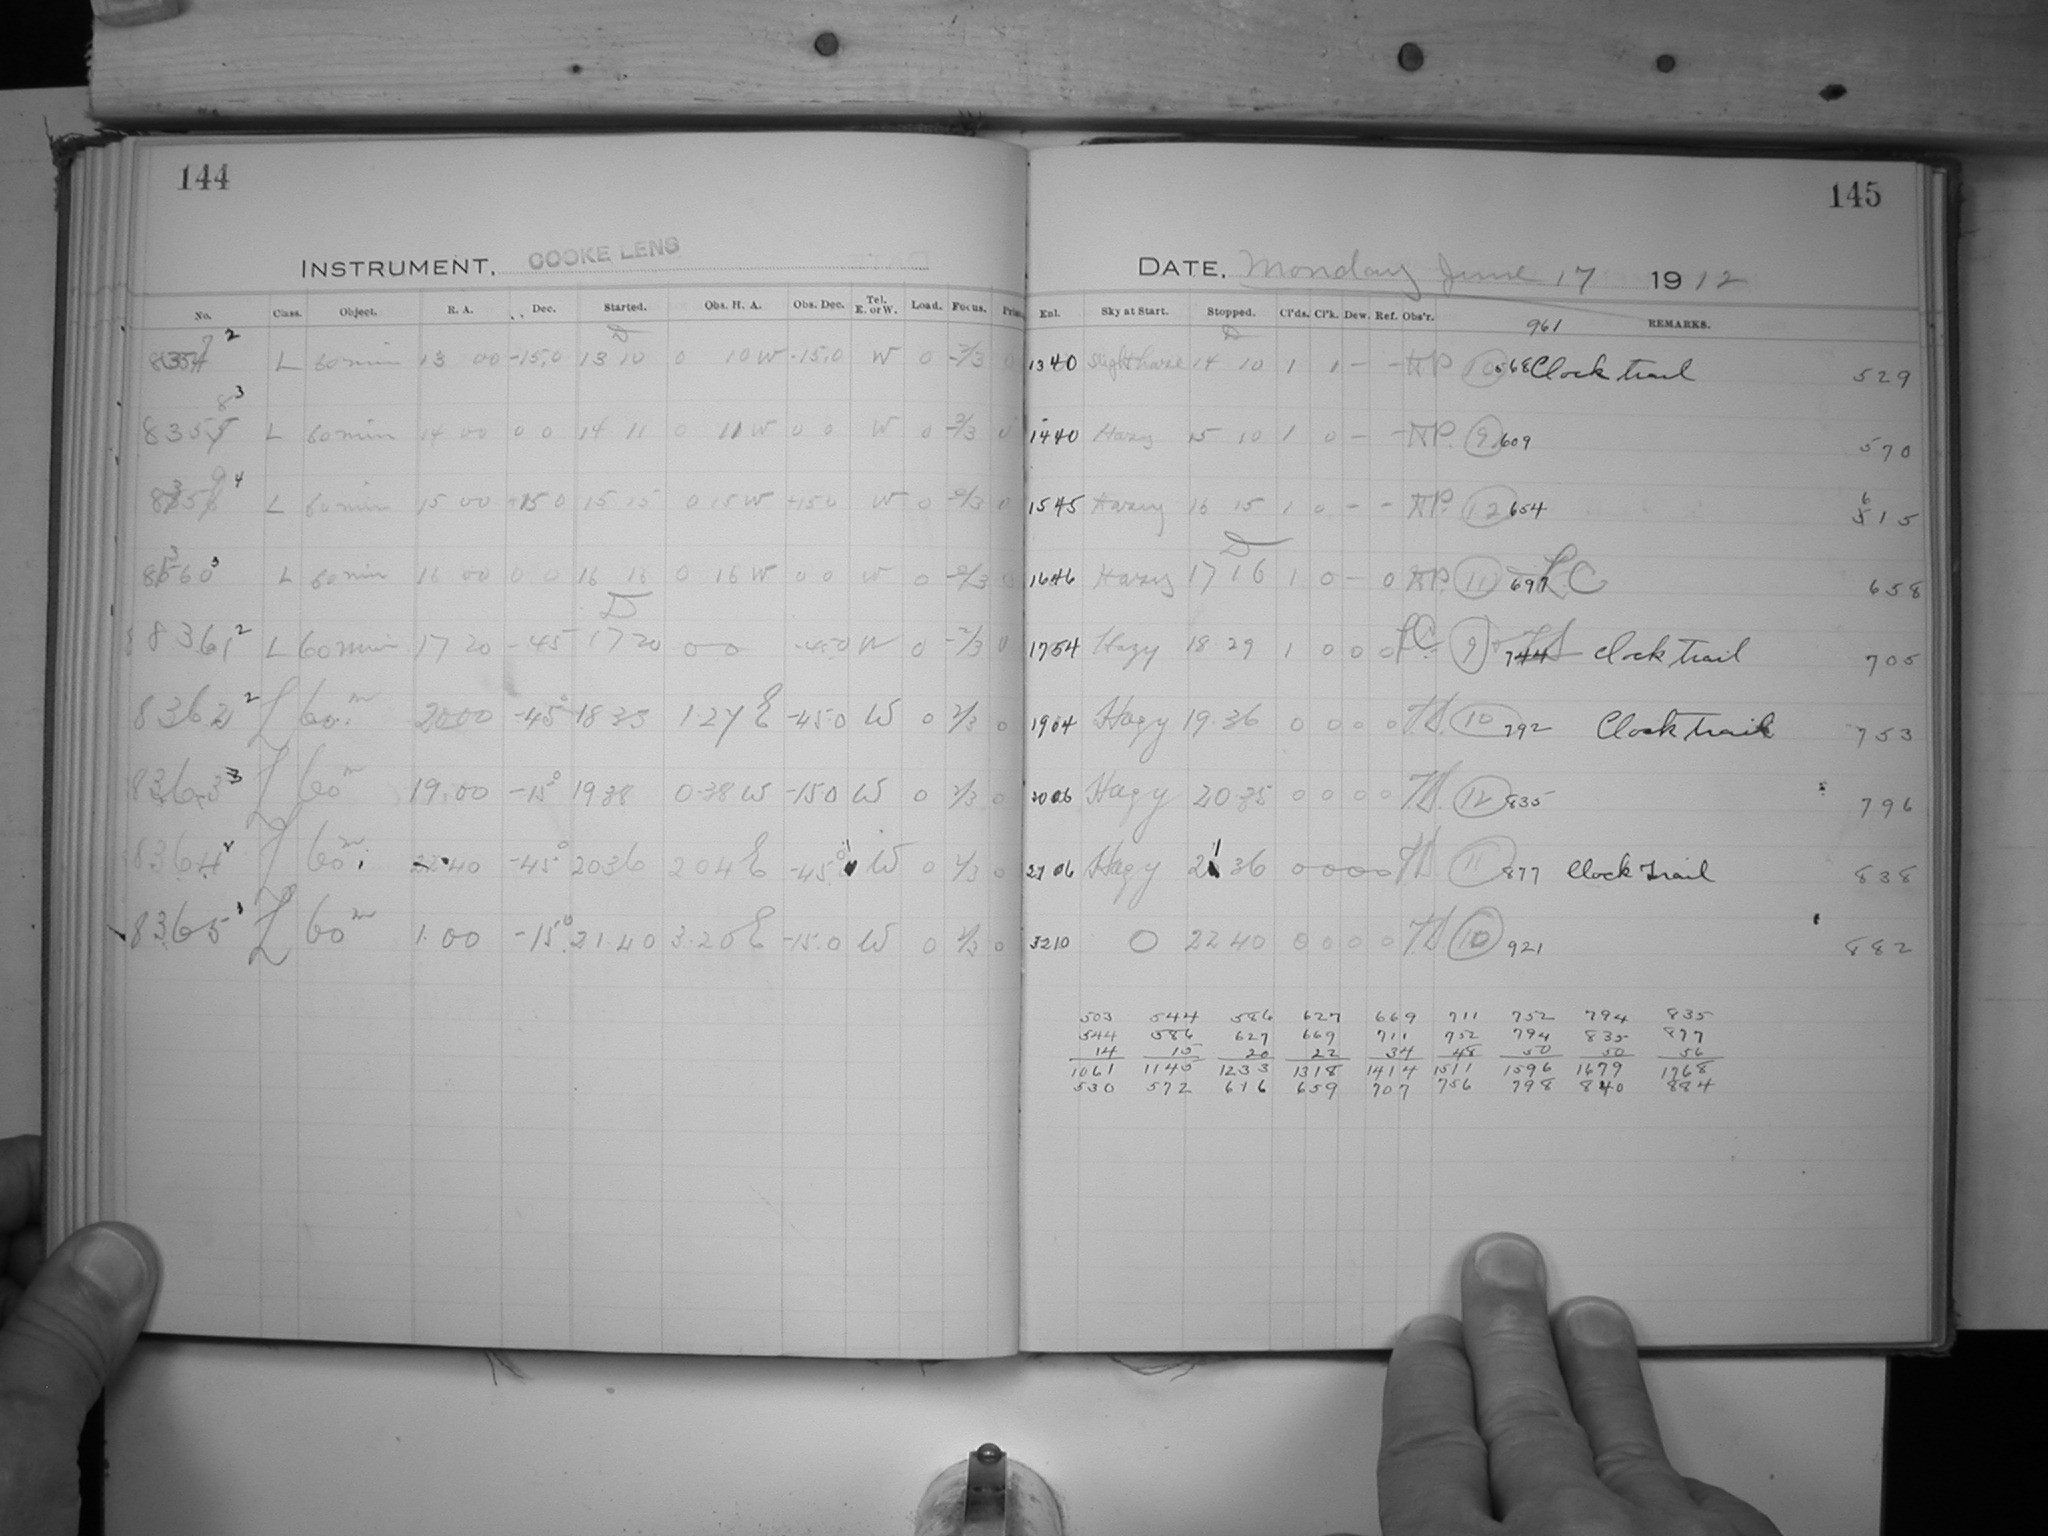 144
INSTRUMENT, COOKE LENS
No. Class. Object. R. A. Dec. Started. Obs. H. A. Obs. Dec. Tel. E. or W. Load. Focus.
L 60 min 13 00 -15.0 13 10 0 10 W -15.0 W 0 0
L 60 min 14 00 0 0 14 11 0 11 W 0 0 W 0 0
L 60 min 15 00 15 0 15 15 0 15 W W 0 0
L 60 min 16 00 0 0 16 16 0 16 W 0 0 W 0 0
8361 2 L 60 min 17 20 -45 17 20 0 0 W 0 0
8362 2 L 60 m 2000 -45 0 1.27 E -45.0 W 0 2/3 0
8363 3 L 60 m 19.00 -15 0 19.38 0.38 W -15.0 W 0 2/3 0
8364 L 60 m 40 -45 0 2036 2 04 E -45 W 0 2/3 0
8365 3 L 60 m 1.00 -15 0 21.40 3.20 E -15.0 W 0 2/3 0
145
DATE, Monday June 17 1912
Eql. Sky at Start. Stopped. Cl'ds. Cl'k. Dew. Ref. Obs'r. 961 REMARKS.
1340 Slight haze 14 10 1 1 - - 10 568 Clock trail 529
1440 Hazy 15 10 1 0 - - 9 609 570
1545 Hazy 16 15 1 0 - - 12 654 6 515
1646 Hazy 17 16 1 0 - 0 11 697 LC 658
1754 Hazy 18 29 1 0 0 0 LC 9 744 Clock trail 705
1904 Hazy 19.36 0 0 0 0 10 792 Clock trail 753
2006 Hazy 20 35 0 0 0 0 12 835 796
2106 Hazy 21 36 0 0 0 0 11 877 Clock Trail 838
3210 0 22 40 0 0 0 0 10 921 882
503 544 586 627 669 711 752 794 835
544 586 627 669 711 752 794 835 877
14 15 20 22 34 48 50 50 56
1061 1145 1233 1318 1414 1511 1596 1679 1768
530 572 616 659 707 756 798 840 884